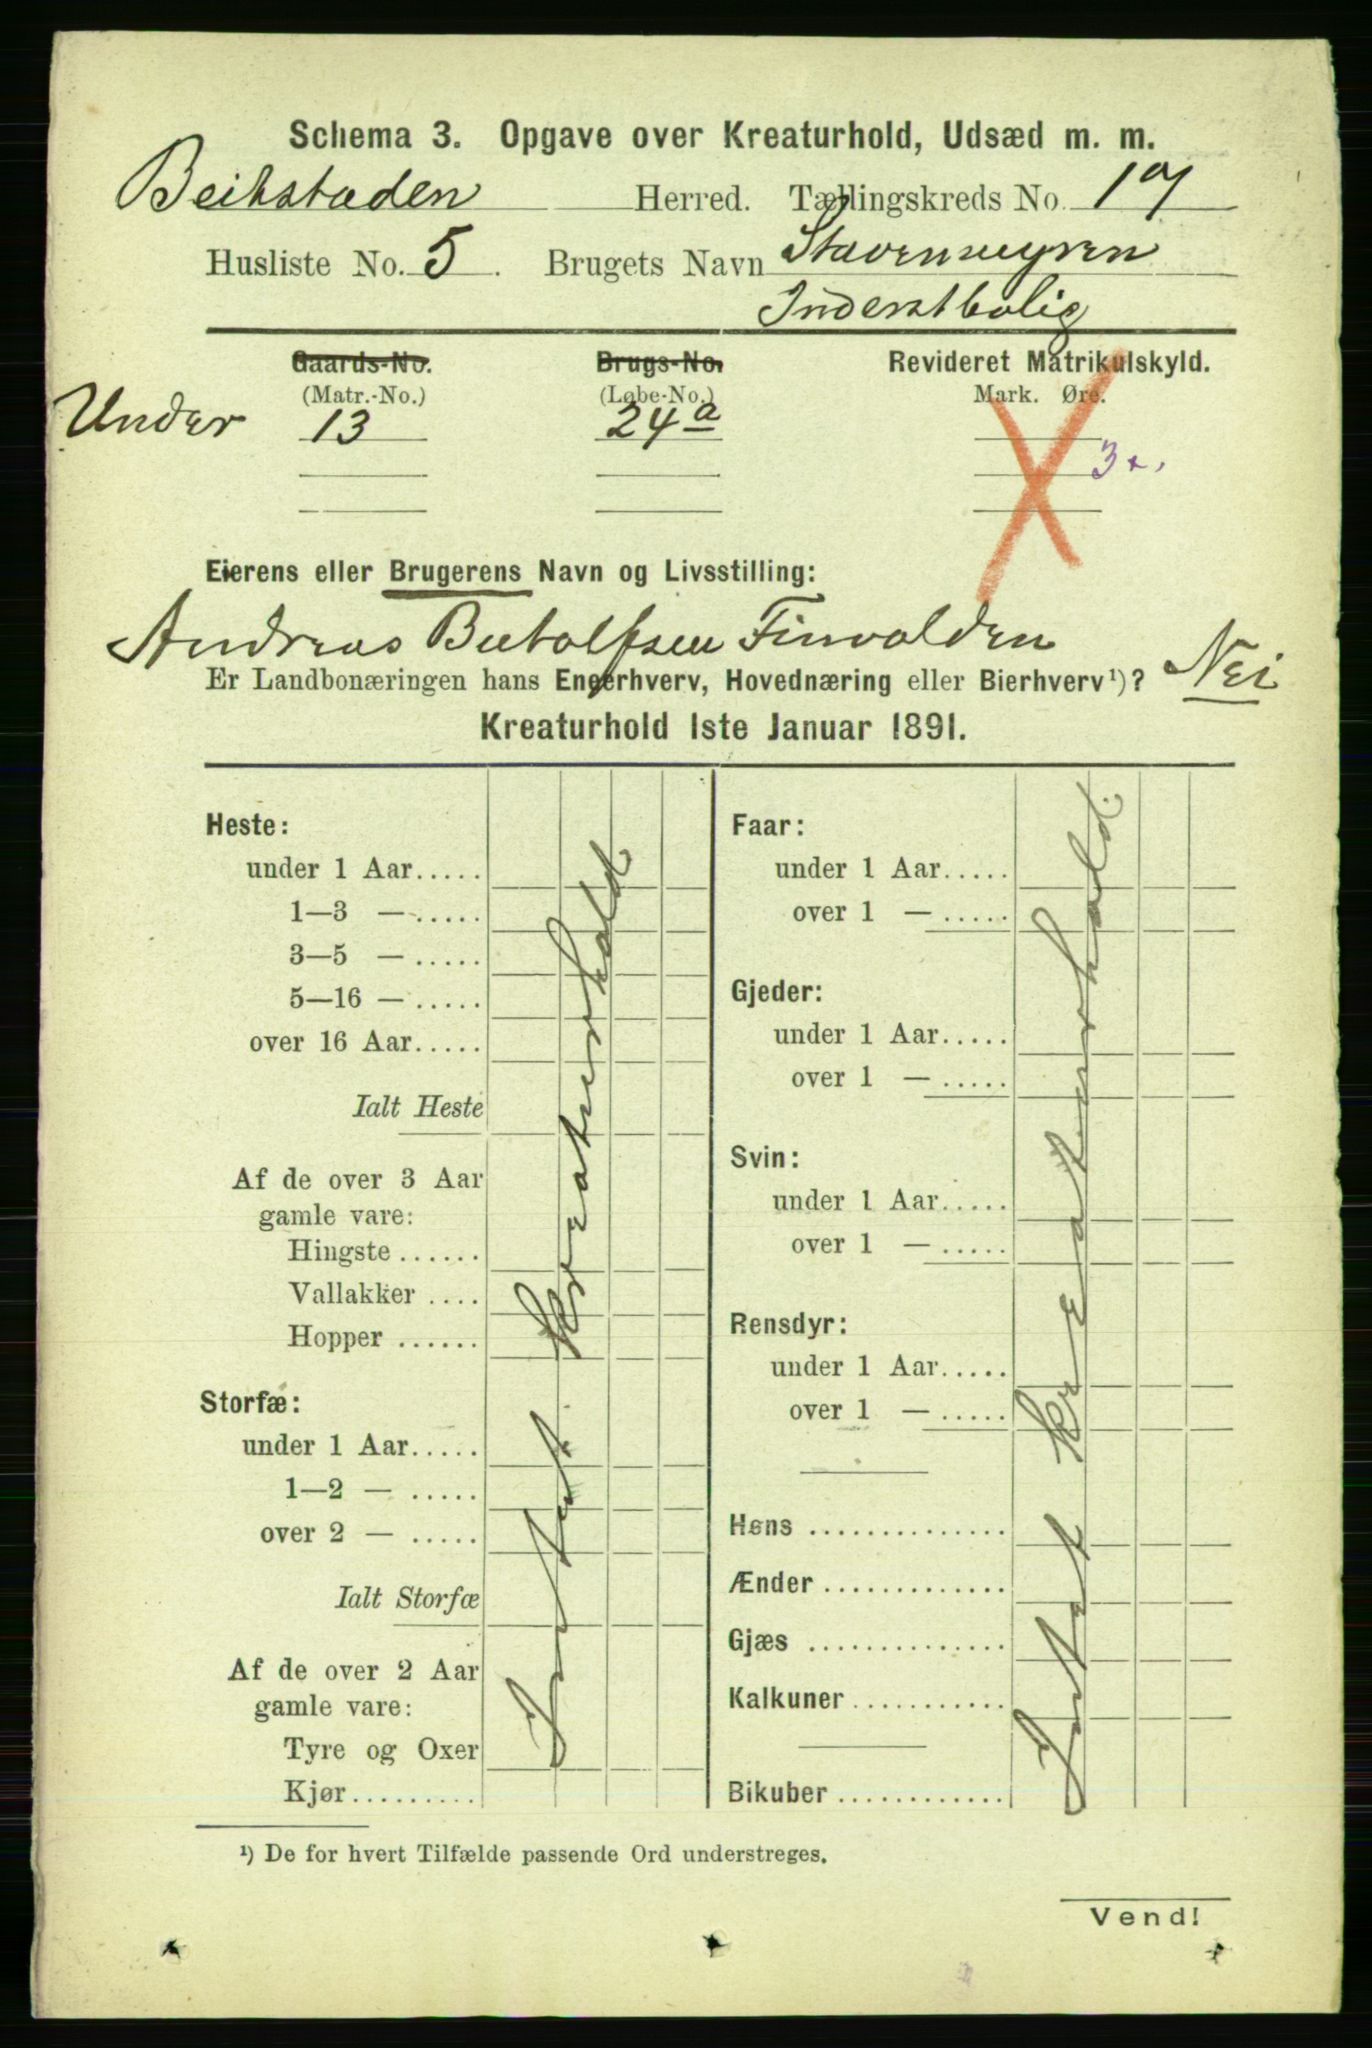 Schema 3. Opgave over Kreaturhold, Udsæd m. m.
Beitstaden Herred. Tællingskreds No. 17
Husliste No. 5. Brugets Navn Stavenmyren
Inderstbolig
Gaards-No. Brugs-No. Revideret Matrikulskyld.
(Matr.-No.) (Løbe-No.) Mark. Øre.
Under 13 24a
3
Eierens eller Brugerens Navn og Livsstilling:
Andreas Butolfsen Finvolden
Er Landbonæringen hans Eneerhverv, Hovednæring eller Bierhverv¹)? Nei
Kreaturhold 1ste Januar 1891.
Heste:
under 1 Aar.....
1—3 — .....
3—5 — .....
5—16 — .....
over 16 Aar.....
Ialt Heste
Af de over 3 Aar
gamle vare:
Hingste ......
Vallakker ....
Hopper ......
Storfæ:
under 1 Aar.....
1—2 — .....
over 2 — .....
Ialt Storfæ
Af de over 2 Aar
gamle vare:
Tyre og Oxer
Kjør.........
Intet Kreaturhold
Faar:
under 1 Aar.....
over 1 — .....
Gjeder:
under 1 Aar.....
over 1 — .....
Svin:
under 1 Aar.....
over 1 — .....
Rensdyr:
under 1 Aar.....
over 1 — .....
Høns ..............
Ænder .............
Gjæs ..............
Kalkuner ...........
Bikuber ............
Intet Kreaturhold.
¹) De for hvert Tilfælde passende Ord understreges.
Vend!